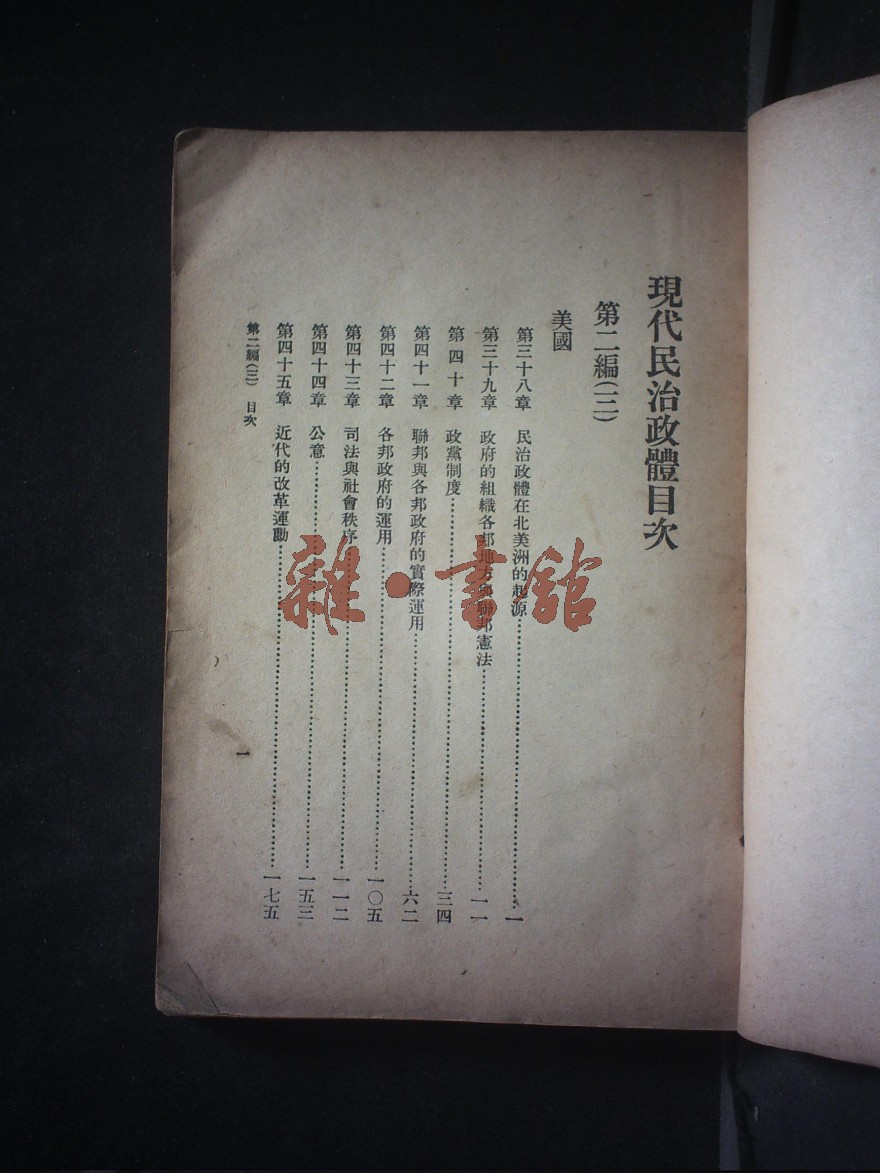 現代民治政體目次
第二編(三)
美國
第三十八章 民治政體在北美洲的起源……一
第三十九章 政府的組織各邦地方與聯邦憲法……一一
第四十章 政黨制度……三四
第四十一章 聯邦與各邦政府的實際運用……六二
第四十二章 各邦政府的運用……一〇五
第四十三章 司法與社會秩序……一一二
第四十四章 公意……一五三
第四十五章 近代的改革運動……一七五
第二編(三) 目次
一
雜·書館